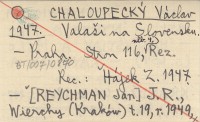 CHALOUPECKÝ Václav
1947. Valaši na Slovensku.
– Praha, Stran 116, Rez.
Rec.: Hájek Z. 1947
– [REYCHMAN Jan] J. R.,
Wierchy (Kraków) t. 19, r. 1949,